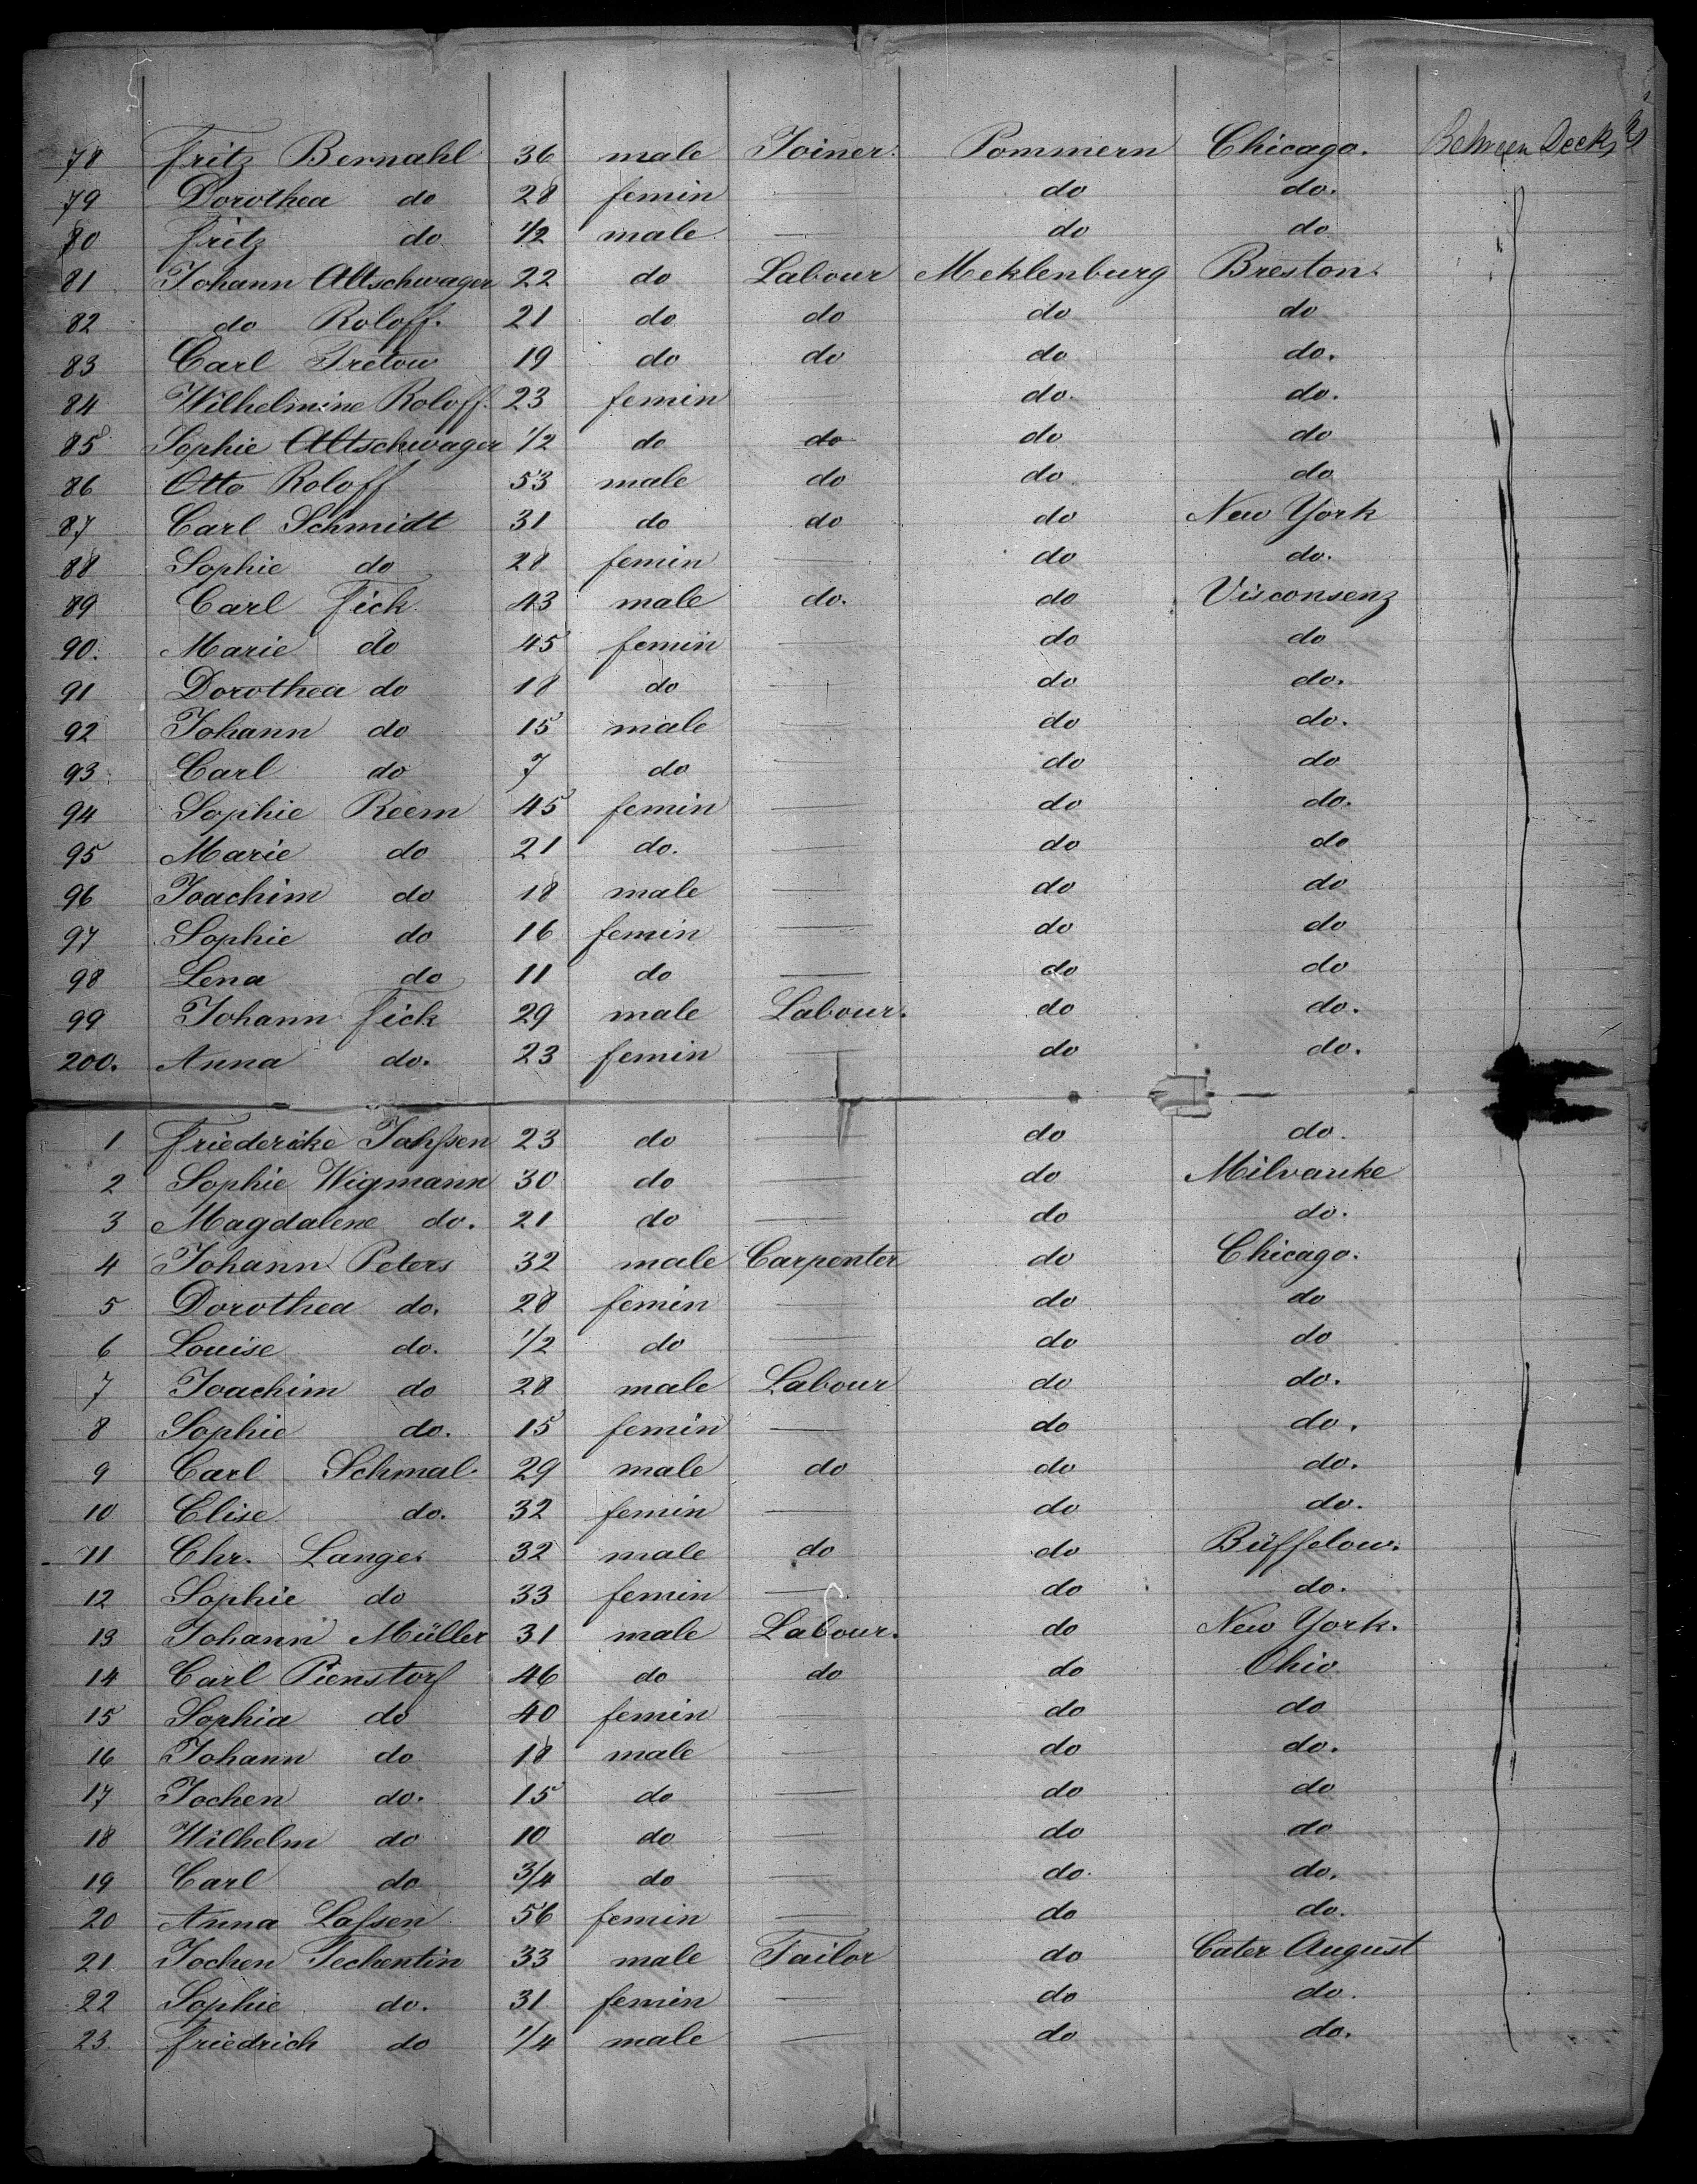 78 Fritz Bernahl 36 male Joiner. Pommern Chicago. Between Decks
79 Dorothea do 28 femin — do do.
80 Fritz do 1/2 male — do do
81 Johann Altschwager 22 do Labour Meklenburg Breston.
82 do Roloff. 21 do do do do
83 Carl Tretow 19 do do do do.
84 Wilhelmine Roloff. 23 femin do. do.
85 Sophie Altschwager 1/2 do do do do
86 Otto Roloff 53 male do do do
87 Carl Schmidt 31 do do do New York
88 Sophie do 28 femin — do do.
89 Carl Fick 43 male do. do Visconsenz
90. Marie do 45 femin — do do
91 Dorothea do 18 do — do do.
92 Johann do 15 male — do do.
93 Carl do 7 do — do do
94 Sophie Reem 45 femin — do do.
95 Marie do 21 do. — do do
96 Joachim do 18 male — do do
97 Sophie do 16 femin — do do
98 Lena do 11 do — do do
99 Johann Fick 29 male Labour. do do.
200. Anna do. 23 femin do do.
1 Friedericke Jahssen 23 do — do do.
2 Sophie Wigmann 30 do do Milvauke
3 Magdalene do. 21 do — do do.
4 Johann Peters 32 male Carpenter do Chicago.
5 Dorothea do. 28 femin — do do
6 Louise do. 1/2 do — do do
7 Joachim do 28 male Labour do do.
8 Sophie do. 15 femin — do do.
9 Carl Schmal. 29 male do do do.
10 Elise do. 32 femin — do do.
11 Chr. Lange. 32 male do do Büffelow.
12 Sophie do 33 femin — do do.
13 Johann Müller 31 male Labour. do New York.
14 Carl Pienstorf 46 do do do Ohio
15 Sophia do 40 femin — do do
16 Johann do 18 male — do do.
17 Jochen do. 15 do — do do
18 Wilhelm do 10 do — do do
19 Carl do 3/4 do — do. do.
20 Anna Lassen 56 femin — do do.
21 Jochen Techentin 33 male Tailor do Cater August
22 Sophie do. 31 femin — do do.
23. Friedrich do 1/4 male — do do.